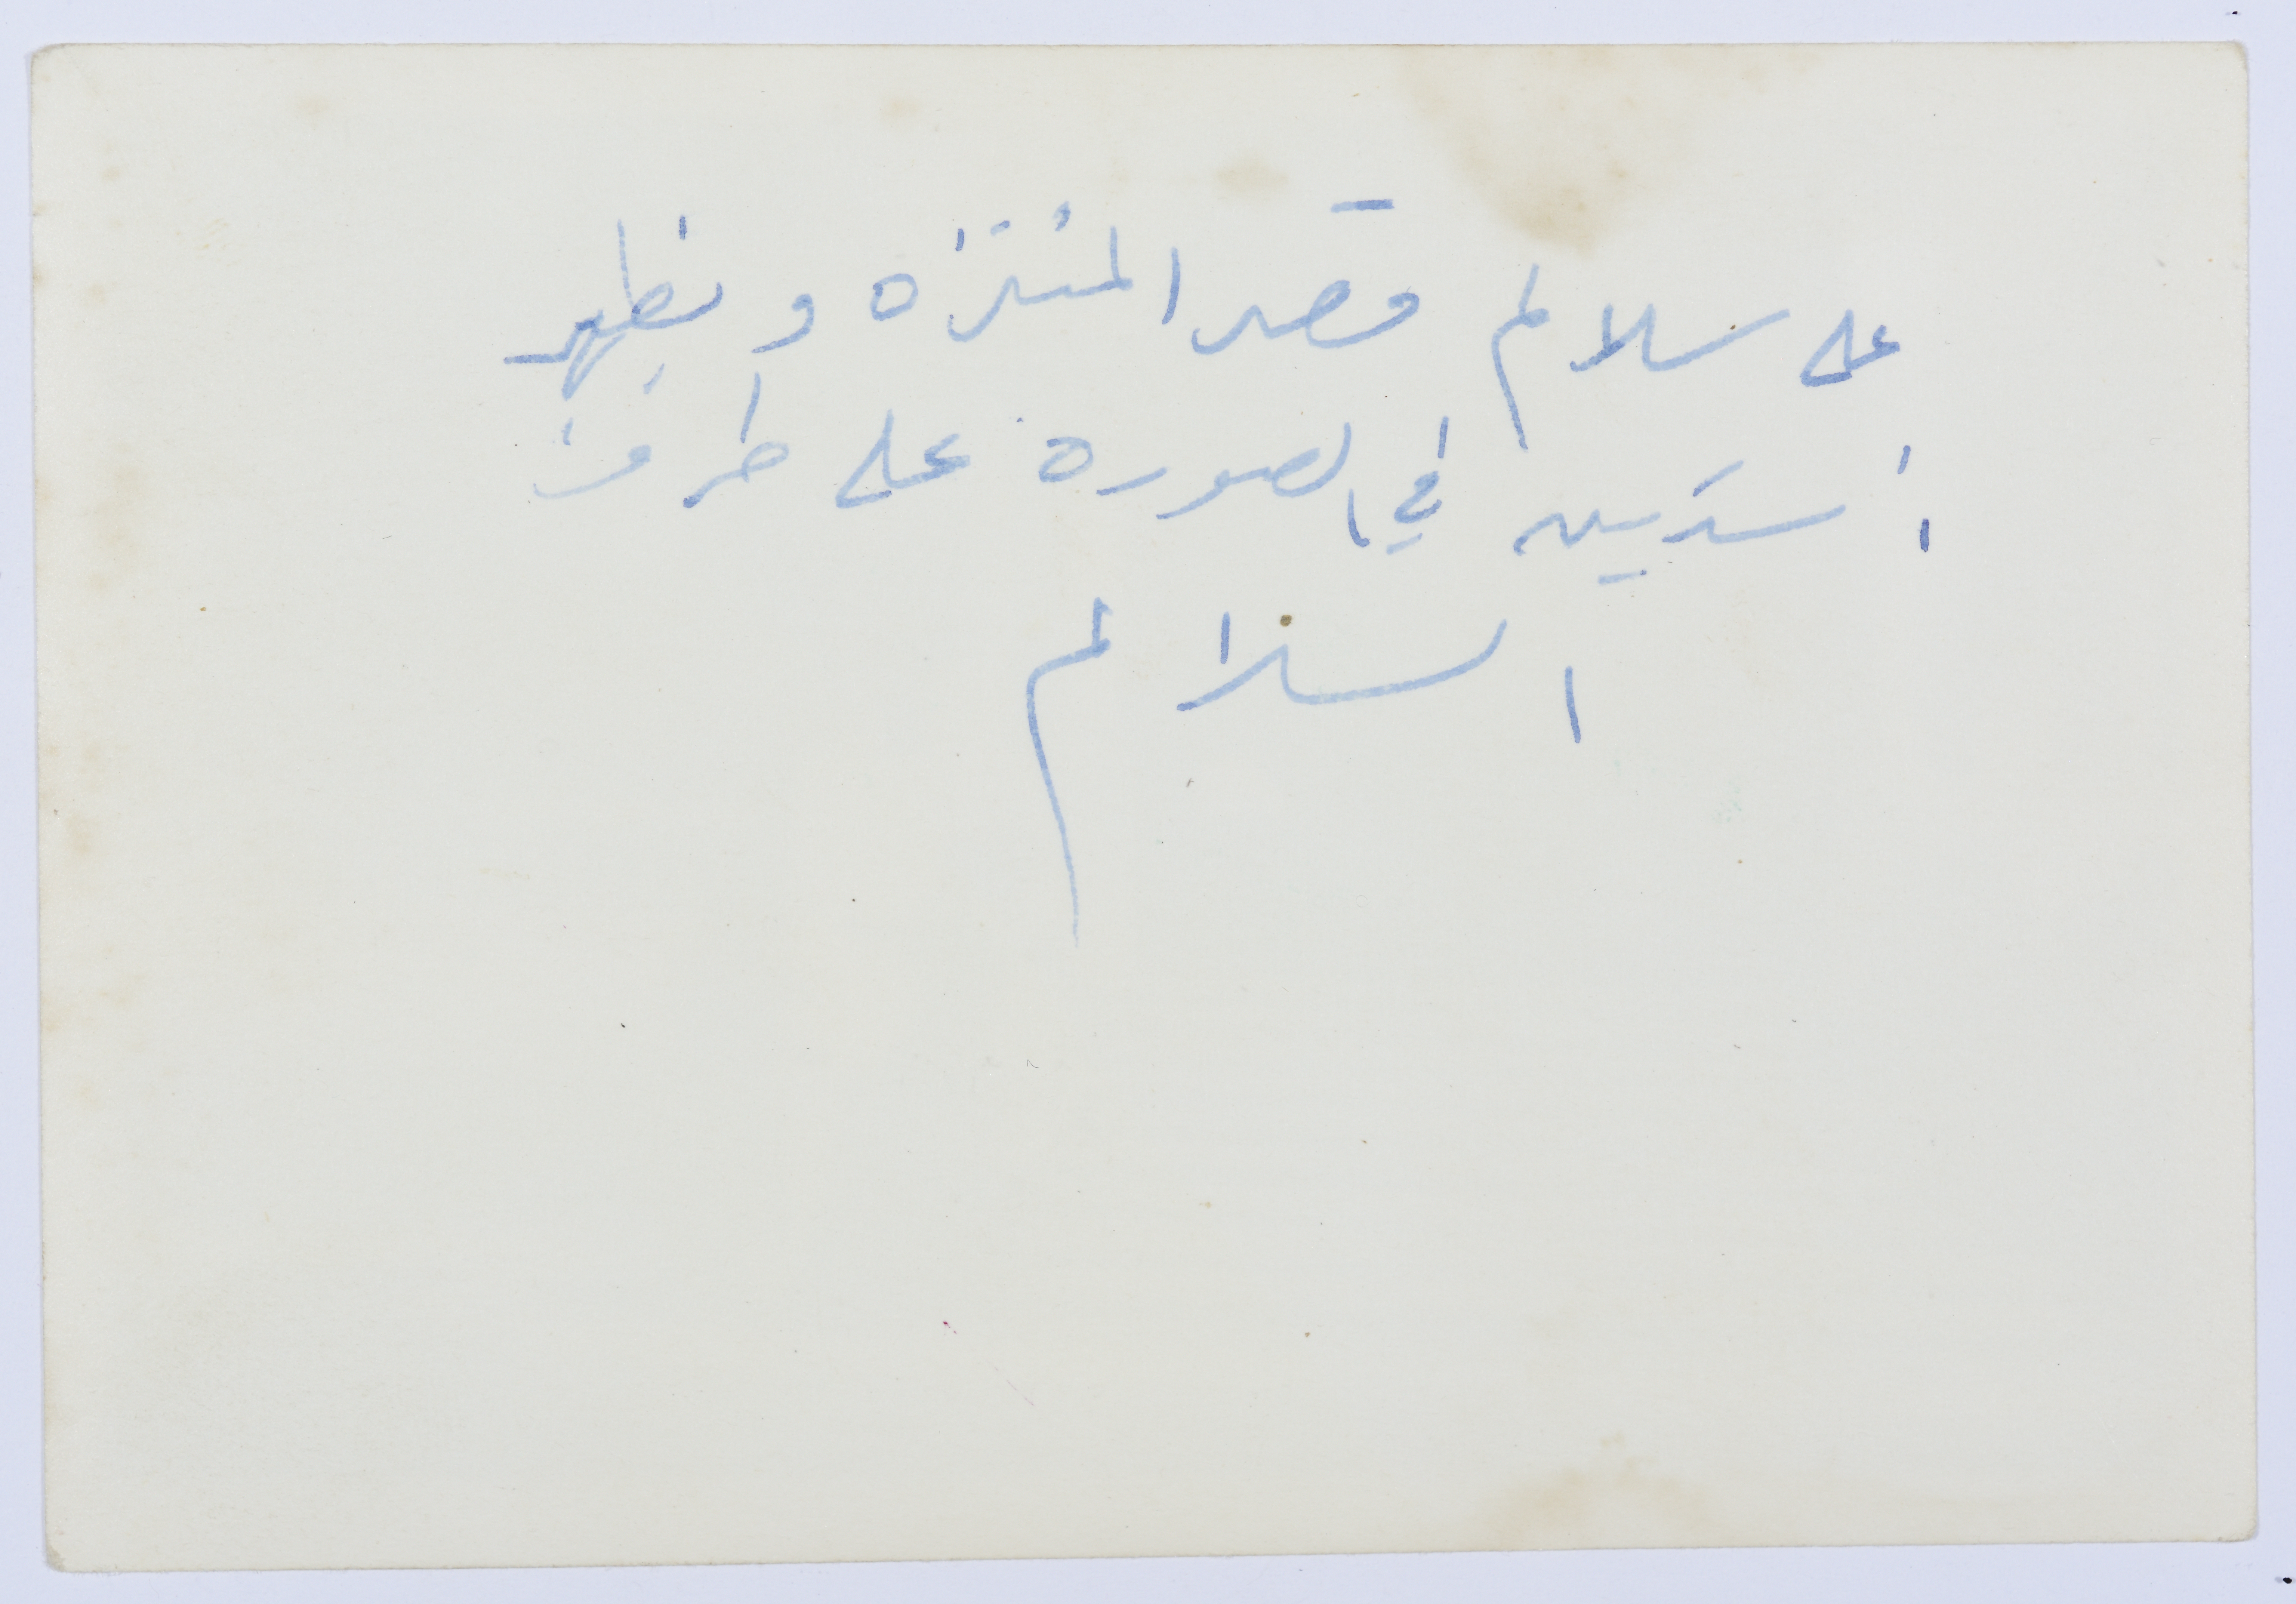 على سلالم قصر المنتزه و يظهر
أسدين في الصورة على طرف
السلالم